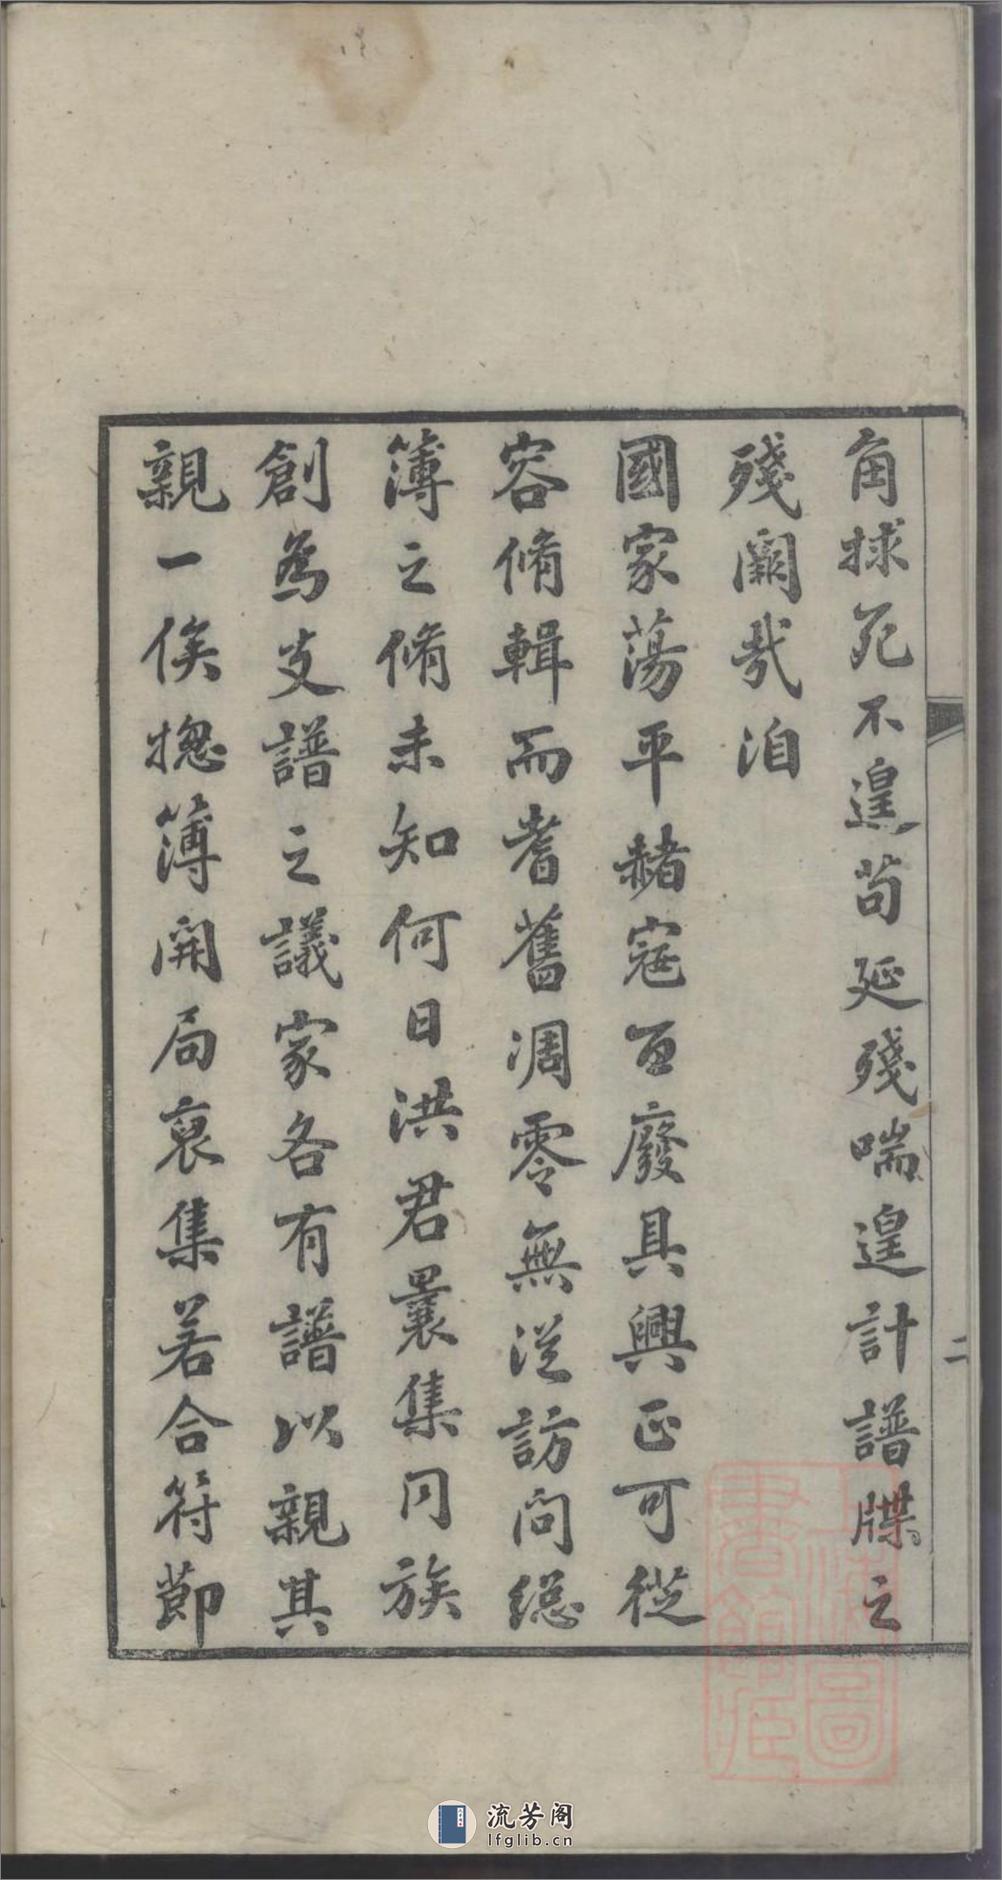 角捄死不遑苟延殘喘遑計譜牒之
殘闕哉洎
國家蕩平赭寇百廢具興正可從
容脩輯而耆舊凋零無從訪問總
簿之脩未知何日洪君曩集同族
創為支譜之議家各有譜以親其
親一俟摠簿開局裒集若合符節
二
上海圖書館藏
流芳阁
lfglib.cn